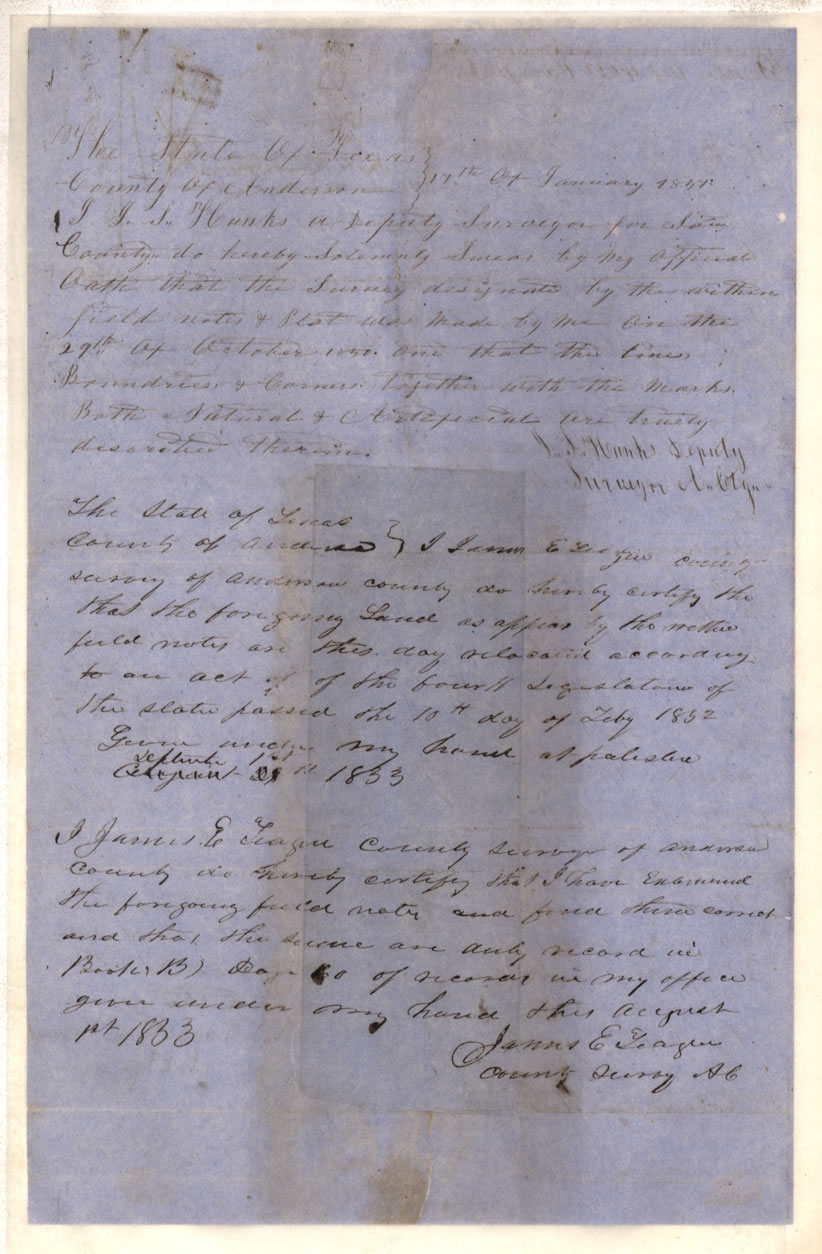 The State Of Texas }
County Of Anderson } 17th Of January 1851
I J. S. Hanks a Deputy Surveyor for Said
County do hereby Solemnly Swear by my Official
Oath that the Survey designate by the within
field notes & Plat was made by me On the
29th Of October 1850. and that the lines
Boundries & Corners together with the marks
Both Natural & Artificial are truely
described therein.
J. S. Hanks Deputy
Surveyor
The State of Texas
County of Anderson } I James E Teague county
survey of Anderson county do hereby certify the
that the foregoing Land as appear by the within
field notes are this day relocated according
to an act of of the fourth Legislature of
the state passed the 10th day of Feby 1852
Given under my hand at palestine
September 1st
August 1853
I James. E Teague County Survey of anderson
County do hereby certify that I have Examined
the foregoing field notes and find them correct
and that the same are duly record in
Book B) Page of records in my office
given under my hand this August
1st 1853
James E Teague
County Survey A C